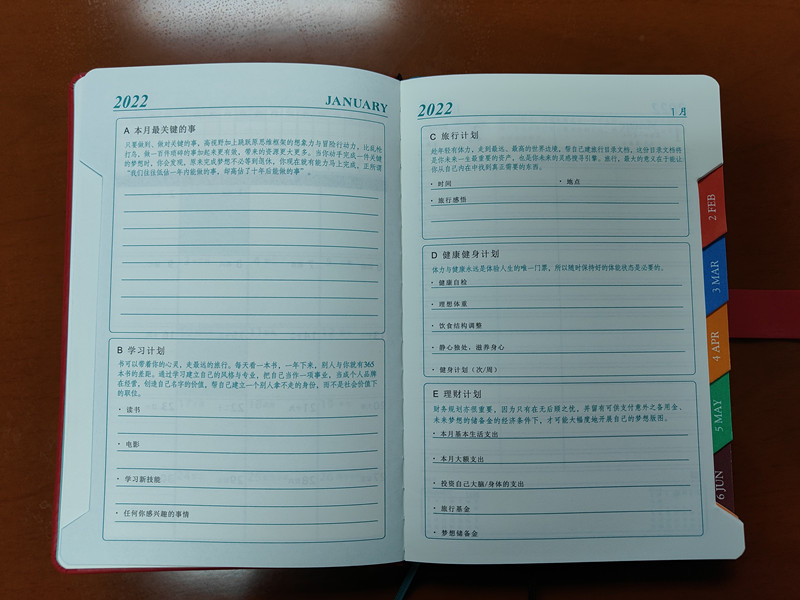 2022
JANUARY
A 本月最关键的事
只要做到、做对关键的事,高视野加上跳跃原思维框架的想象力与冒险行动力,比乱枪
打鸟、做一百件琐碎的事加起来更有效,带来的资源更大更多。当你动手完成一件关键
的梦想时,你会发现,原来完成梦想不必等到退休,你现在就有能力马上完成。正所谓
“我们往往低估一年内能做的事,却高估了十年后能做的事”。
B 学习计划
书可以带着你的心灵,走最远的旅行。每天看一本书,一年下来,别人与你就有365
本书的差距。通过学习建立自己的风格与专业,把自己当作一项事业,当成个人品牌
在经营,创造自己名字的价值,帮自己建立一个别人拿不走的身份,而不是社会价值下
的职位。
· 读书
· 电影
· 学习新技能
· 任何你感兴趣的事情
2022
1 月
C 旅行计划
趁年轻有体力,走到最远、最高的世界边境,帮自己建旅行目录文档,这份目录文档将
是你未来一生最重要的资产,也是你未来的灵感搜寻引擎。旅行,最大的意义在于能让
你从自己内在中找到真正需要的东西。
· 时间 · 地点
· 旅行感悟
D 健康健身计划
体力与健康永远是体验人生的唯一门票,所以随时保持好的体能状态是必要的。
· 健康自检
· 理想体重
· 饮食结构调整
· 静心独处,滋养身心
· 健身计划(次/周)
E 理财计划
财务规划亦很重要,因为只有在无后顾之忧,并留有可供支付意外之备用金、
未来梦想的储备金的经济条件下,才可能大幅度地开展自己的梦想版图。
· 本月基本生活支出
· 本月大额支出
· 投资自己大脑/身体的支出
· 旅行基金
· 梦想储备金
2 FEB
3 MAR
4 APR
5 MAY
6 JUN